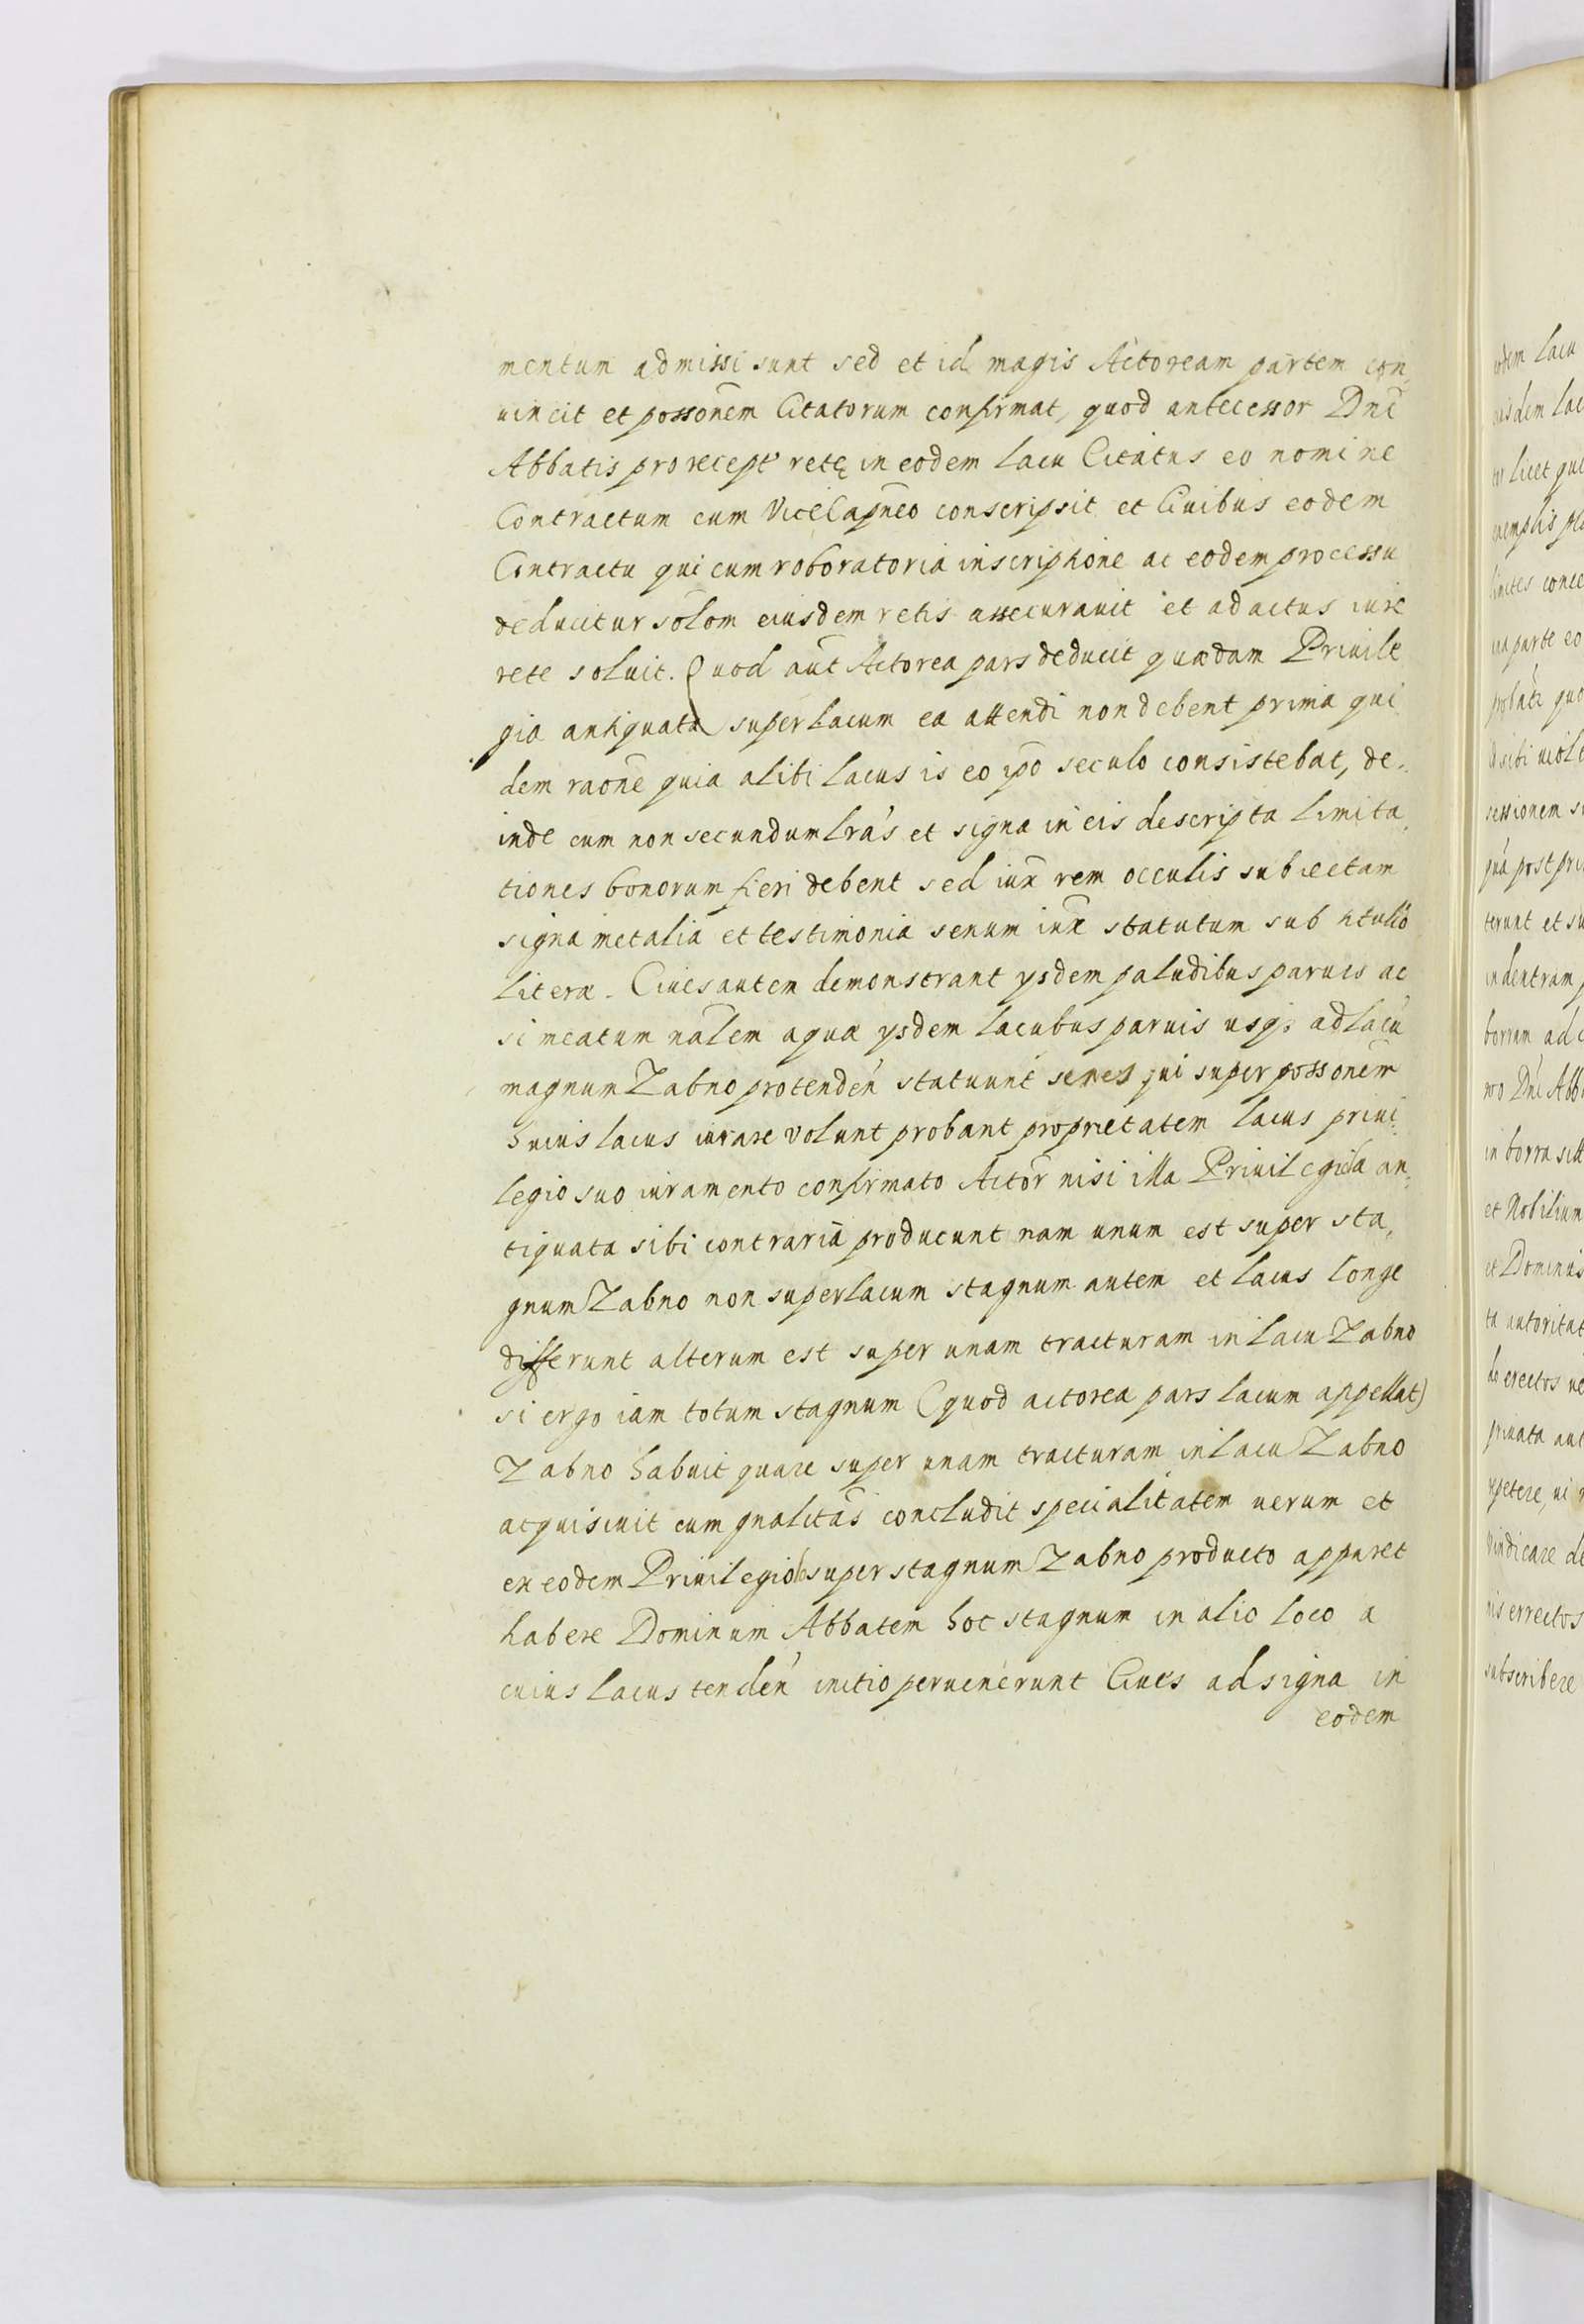 mentum admissi sunt sed et id magis Actoream partem con,
uincit et possonem Citatorum confirmat, quod antecessor Dni
Abbatis pro recept' retę in eodem lacu Citatus eo nomine
Contractum cum ViceCapneo conscripsit et Ciuibus eodem
Contractu qui cum roboratoria inscriptione ac eodem processu
deducitur solom eiusdem retis assecurauit et adactus iure
rete soluit. Quod aut Actorea pars deducit quædam Priuile
gia antiquata super lacum ea attendi non debent prima qui
dem raone quia alibi lacus is eo ipo seculo consistebat, de,
inde cum non secundum lras et signa in eis descripta limita,
tiones bonorum fieri debent sed iux rem occulis subiectam
signa metalia et testimonia senum iux statutum sub titulo
literæ. Ciues autem demonstrant ysdem paludibus paruis ac
si meatum nalem aquæ ysdem lacubus paruis usq; ad lacu
magnum Zabno protenden statuunt senes qui super possonem
huius lacus iurare volunt probant proprietatem lacus priui,
legio suo iuramento confirmato Actor nisi illa Priuilegia an,
tiquata sibi contraria producunt nam unum est super sta,
gnum Zabno non super lacum stagnum autem et lacus longe
differunt alterum est super unam tracturam in lacu Zabno
si ergo iam totum stagnum (quod actorea pars lacum appellat)
Zabno habuit quare super unam tracturam in lacu Zabno
acquisiuit cum gnalitas concludit specialitatem uerum et
ex eodem Priuilegio super stagnum Zabno producto apparet
habere Dominum Abbatem hoc stagnum in alio loco a
cuius lacus tenden initio peruenerunt Ciues ad signa in
eodem